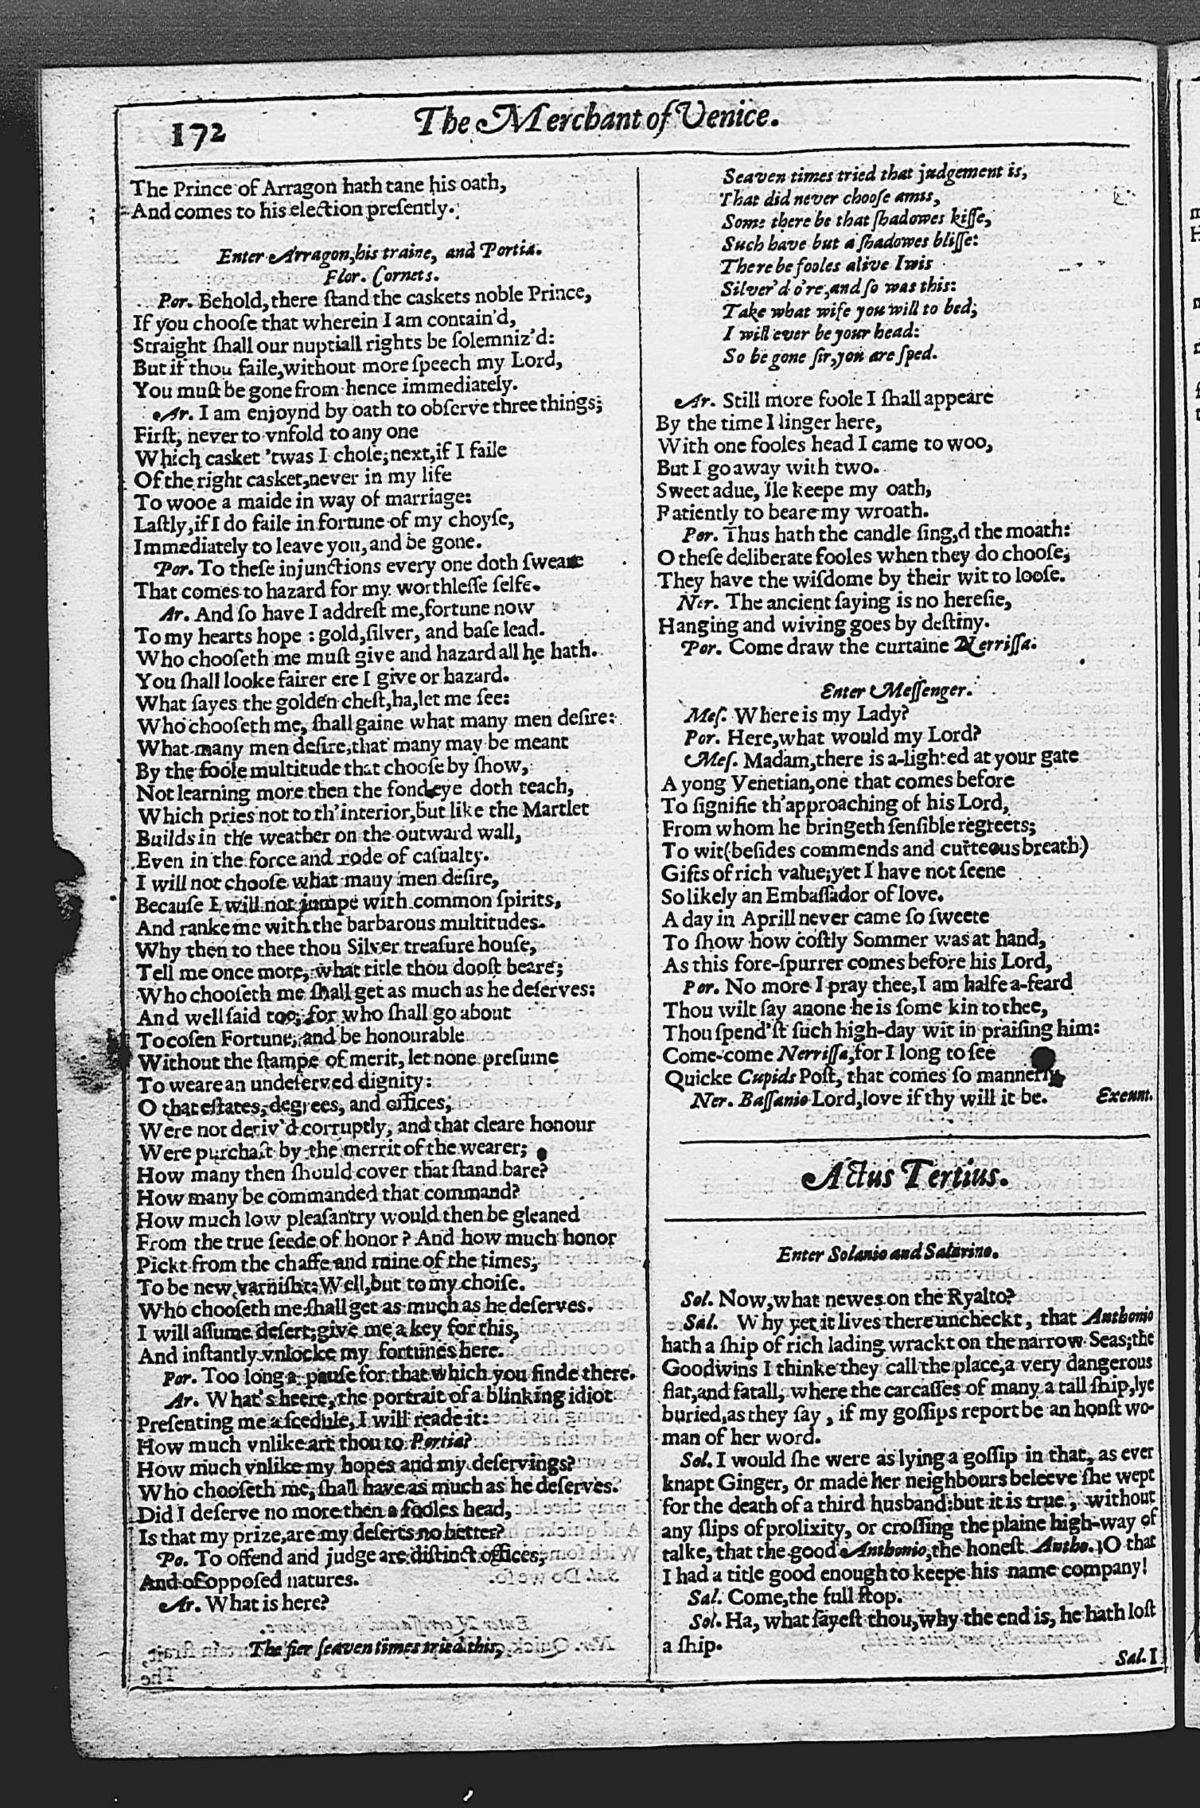 172
The Merchant of Venice.
The Prince of Arragon hath tane his oath,
And comes to his election preſently.
Enter Arragon, his traine, and Portia.
Flor. Cornets.
Por. Behold, there ſtand the caskets noble Prince,
If you chooſe that wherein I am contain'd,
Straight ſhall our nuptiall rights be ſolemniz'd:
But if thou faile, without more ſpeech my Lord,
You muſt be gone from hence immediately.
Ar. I am enjoynd by oath to obſerve three things;
Firſt, never to vnfold to any one
Which casket 'twas I choſe; next, if I faile
Of the right casket, never in my life
To wooe a maide in way of marriage:
Laſtly, if I do faile in fortune of my choyſe,
Immediately to leave you, and be gone.
Por. To theſe injunctions every one doth ſweare
That comes to hazard for my worthleſſe ſelfe.
Ar. And ſo have I addreſt me, fortune now
To my hearts hope : gold, ſilver, and baſe lead.
Who chooſeth me muſt give and hazard all he hath.
You ſhall looke fairer ere I give or hazard.
What ſayes the golden cheſt, ha, let me ſee:
Who chooſeth me, ſhall gaine what many men deſire:
What many men deſire, that many may be meant
By the foole multitude that chooſe by ſhow,
Not learning more then the fond eye doth teach,
Which pries not to th' interior, but like the Martlet
Builds in the weather on the outward wall,
Even in the force and rode of caſualty.
I will not chooſe what many men deſire,
Becauſe I will not jumpe with common ſpirits,
And ranke me with the barbarous multitudes.
Why then to thee thou Silver treaſure houſe,
Tell me once more, what title thou dooſt beare;
Who chooſeth me ſhall get as much as he deſerves:
And well ſaid too; for who ſhall go about
To coſen Fortune, and be honourable
Without the ſtampe of merit, let none preſume
To weare an undeſerved dignity:
O that eſtates, degrees, and offices,
Were not deriv'd corruptly, and that cleare honour
Were purchaſt by the merrit of the wearer;
How many then ſhould cover that ſtand bare?
How many be commanded that command?
How much low pleaſantry would then be gleaned
From the true ſeede of honor? And how much honor
Pickt from the chaffe and ruine of the times,
To be new varniſht: Well, but to my choiſe.
Who chooſeth me ſhall get as much as he deſerves.
I will aſſume deſert; give me a key for this,
And inſtantly vnlocke my fortunes here.
Por. Too long a pauſe for that which you finde there.
Ar. What's heere, the portrait of a blinking idiot
Preſenting me a ſcedule, I will reade it:
How much vnlike art thou to Portia?
How much vnlike my hopes and my deſervings?
Who chooſeth me, ſhall have as much as he deſerves.
Did I deſerve no more then a fooles head,
Is that my prize, are my deſerts no better?
Po. To offend and judge are diſtinct offices,
And of oppoſed natures.
Ar. What is here?
The fier ſeaven times tried this,
Seaven times tried that judgement is,
That did never chooſe amis,
Some there be that ſhadowes kiſſe,
Such have but a ſhadowes bliſſe:
There be fooles alive Iwis
Silver'd o're, and ſo was this:
Take what wife you will to bed;
I will ever be your head:
So be gone ſir, you are ſped.
Ar. Still more foole I ſhall appeare
By the time I linger here,
With one fooles head I came to woo,
But I go away with two.
Sweet adue, Ile keepe my oath,
Patiently to beare my wroath.
Por. Thus hath the candle ſing,d the moath:
O theſe deliberate fooles when they do chooſe,
They have the wiſdome by their wit to looſe.
Ner. The ancient ſaying is no hereſie,
Hanging and wiving goes by deſtiny.
Por. Come draw the curtaine Nerriſſa.
Enter Meſſenger.
Meſ. Where is my Lady?
Por. Here, what would my Lord?
Meſ. Madam, there is a-lighted at your gate
A yong Venetian, one that comes before
To ſignifie th'approaching of his Lord,
From whom he bringeth ſenſible regreets;
To wit (beſides commends and curteous breath)
Gifts of rich value; yet I have not ſeene
So likely an Embaſſador of love.
A day in Aprill never came ſo ſweete
To ſhow how coſtly Sommer was at hand,
As this fore-ſpurrer comes before his Lord,
Por. No more I pray thee, I am halfe a-feard
Thou wilt ſay anone he is ſome kin to thee,
Thou ſpend'ſt ſuch high-day wit in praiſing him:
Come-come Nerriſſa, for I long to ſee
Quicke Cupids Poſt, that comes ſo mannerly.
Ner. Baſſanio Lord, love if thy will it be. Exeunt.
Actus Tertius.
Enter Solanio and Salarino.
Sol. Now, what newes on the Ryalto?
Sal. Why yet it lives there uncheckt, that Anthonio
hath a ſhip of rich lading wrackt on the narrow Seas; the
Goodwins I thinke they call the place, a very dangerous
flat, and fatall, where the carcaſſes of many a tall ſhip, lye
buried, as they ſay, if my goſſips report be an honſt wo-
man of her word.
Sol. I would ſhe were as lying a goſſip in that, as ever
knapt Ginger, or made her neighbours beleeve ſhe wept
for the death of a third husband: but it is true, without
any ſlips of prolixity, or croſſing the plaine high-way of
talke, that the good Anthonio, the honeſt Antho. O that
I had a title good enough to keepe his name company!
Sal. Come, the full ſtop.
Sol. Ha, what ſayeſt thou, why the end is, he hath loſt
a ſhip.
Sal. I